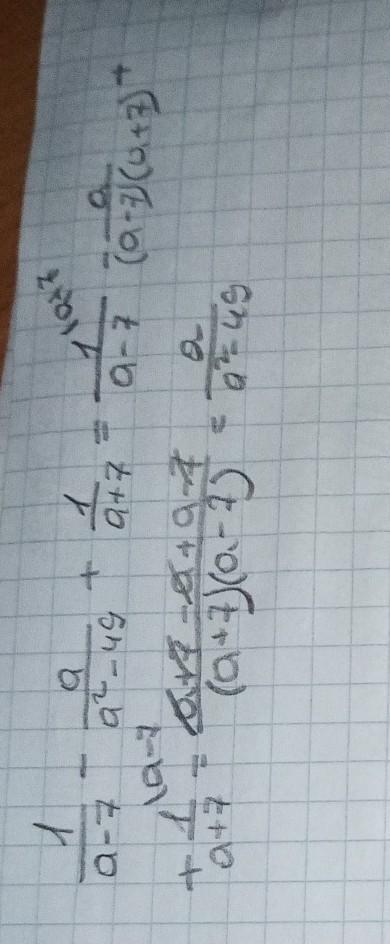 1/(a-7) - a/(a²-49) + 1/(a+7) = 1/(a-7) \a+7 - a/((a-7)(a+7)) +
+ 1/(a+7) \a-7 = (a+7-a+a-7)/((a+7)(a-7)) = a/(a²-49)